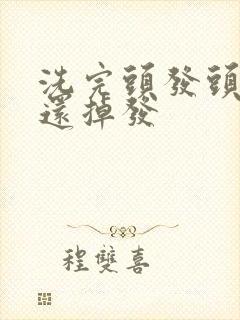 洗完頭發頭
還掉發
程雙喜